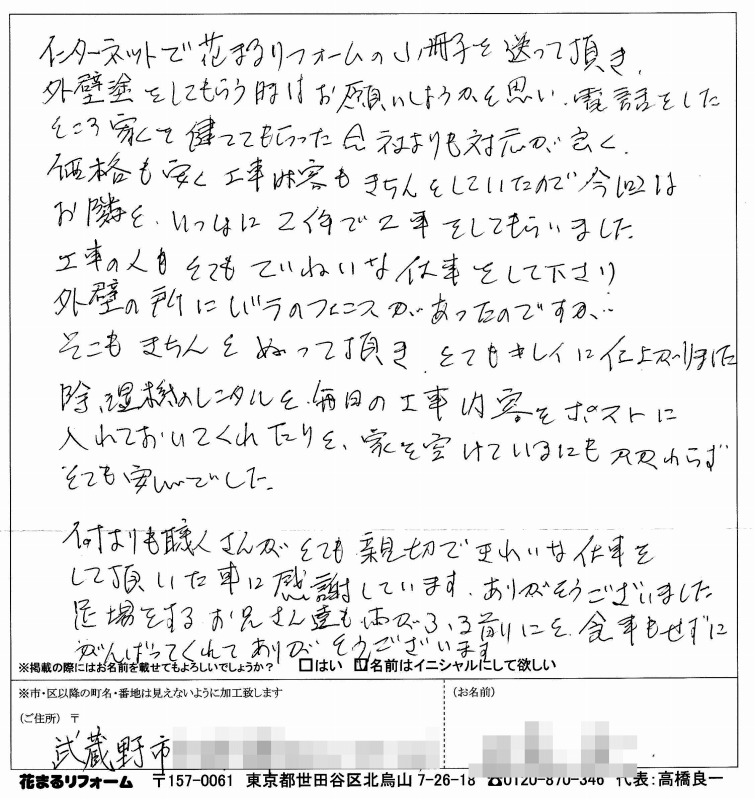 インターネットで花まるリフォームの小冊子を送って頂き、
外壁塗をしてもらう時はお願いしようかと思い、電話をした
ところ家を建ててもらった会社よりも対応が良く、
価格も安く工事内容もきちんとしていたので今回は
お隣と、いっしょに2件で工事をしてもらいました
工事の人もとてもていねいな仕事をして下さり
外壁の所にバラのフェンスがあったのですが、
そこもきちんとぬって頂き、とてもキレイに仕上がりました
除湿機のレンタルや、毎日の工事内容をポストに
入れておいてくれたりと、家を空けているにも関わらず
とても安心でした。
何よりも職人さんがとても親切できれいな仕事を
して頂いた事に感謝しています。ありがとうございました
足場をするお兄さん達も雨がふる前にと、食事もせずに
がんばってくれてありがとうございます
※掲載の際にはお名前を載せてもよろしいでしょうか? □はい □名前はイニシャルにして欲しい
※市・区以降の町名・番地は見えないように加工致します
(お名前)
(ご住所) 〒
武蔵野市
花まるリフォーム 〒157-0061 東京都世田谷区北烏山 7-26-18 ☎0120-870-346 代表:高橋良一